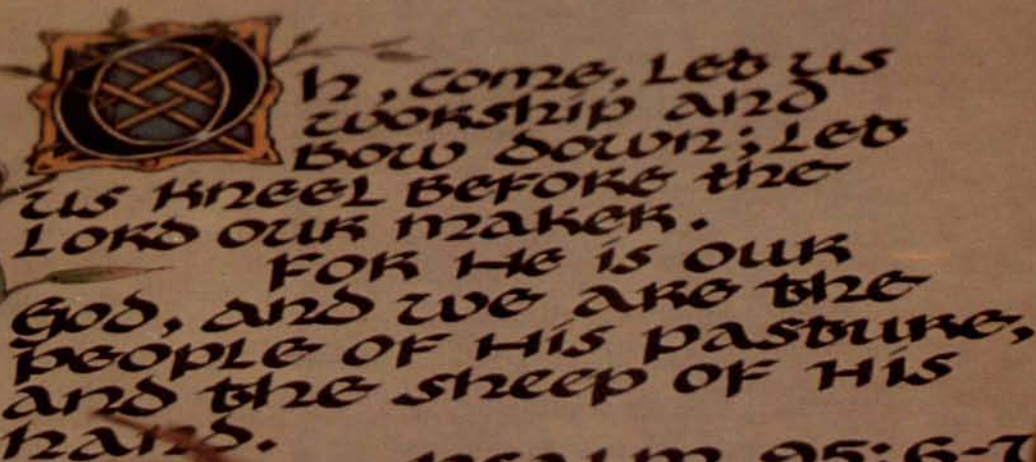 Oh, come, let us
worship and
bow down; let
us kneel before the
Lord our maker.
For He is our
God, and we are the
people of His pasture,
and the sheep of His
hand.
Psalm 95:6-7